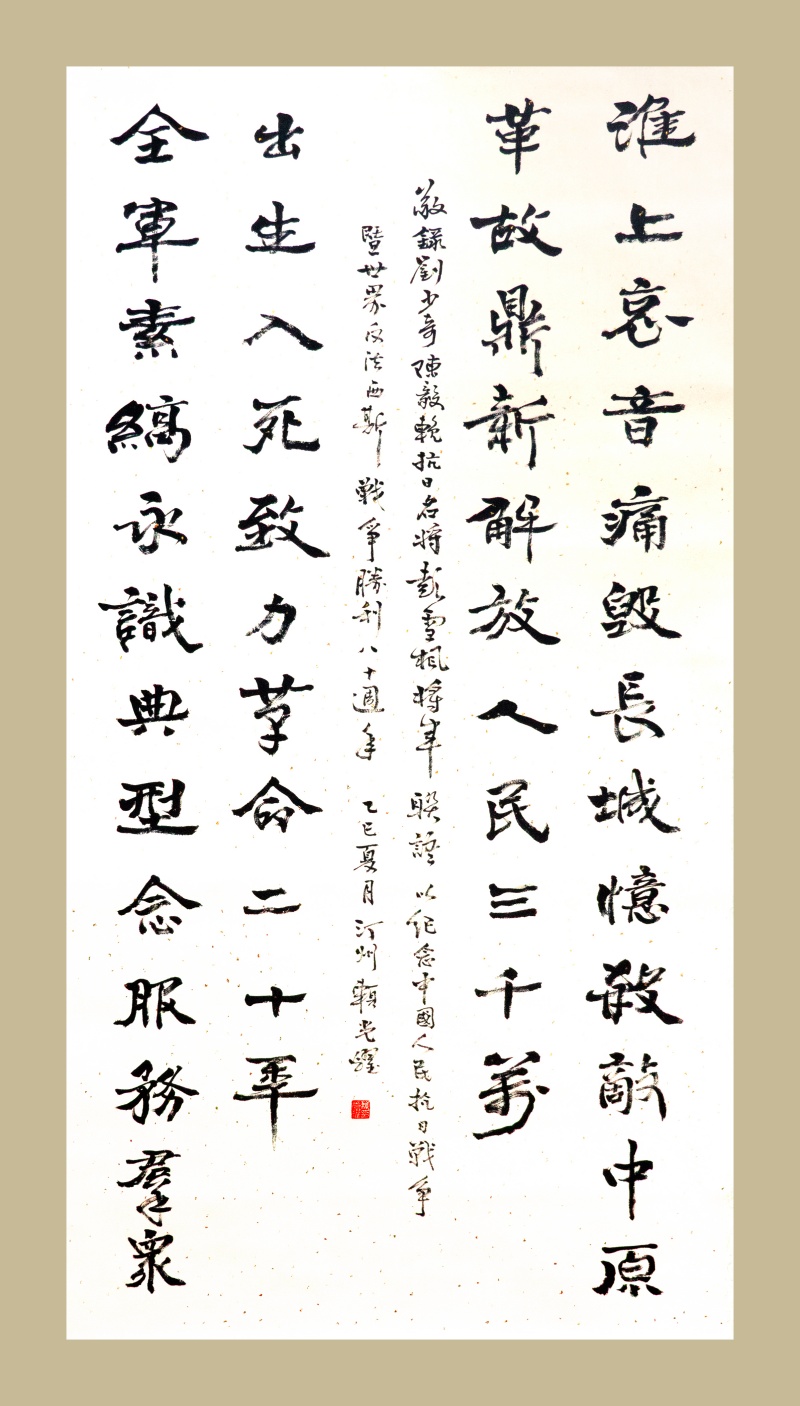 淮上哀音痛毀長城憶殺敵中原
革故鼎新解放人民三千萬
全軍素縞永識典型念服務羣衆
出生入死致力革命二十年
敬録劉少奇陳毅輓抗日名將彭雪楓將軍聯語以紀念中國人民抗日戰爭
暨世界反法西斯戰爭勝利八十週年 乙巳夏月汀州賴光耀